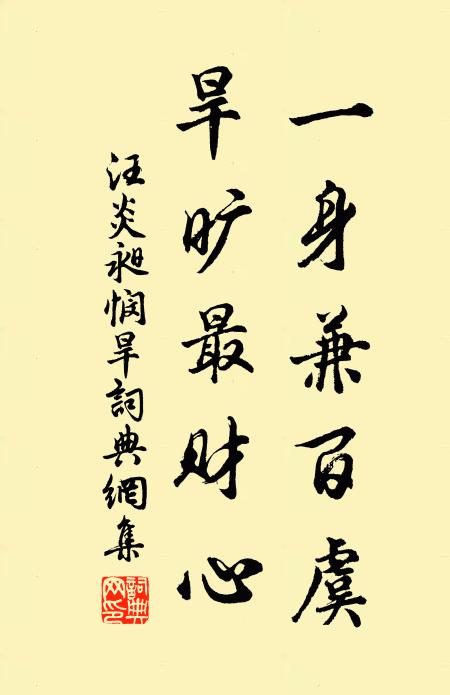 一身兼百虞
旱旷最财心
汪炎昶悯旱詞典網集
詞典网印